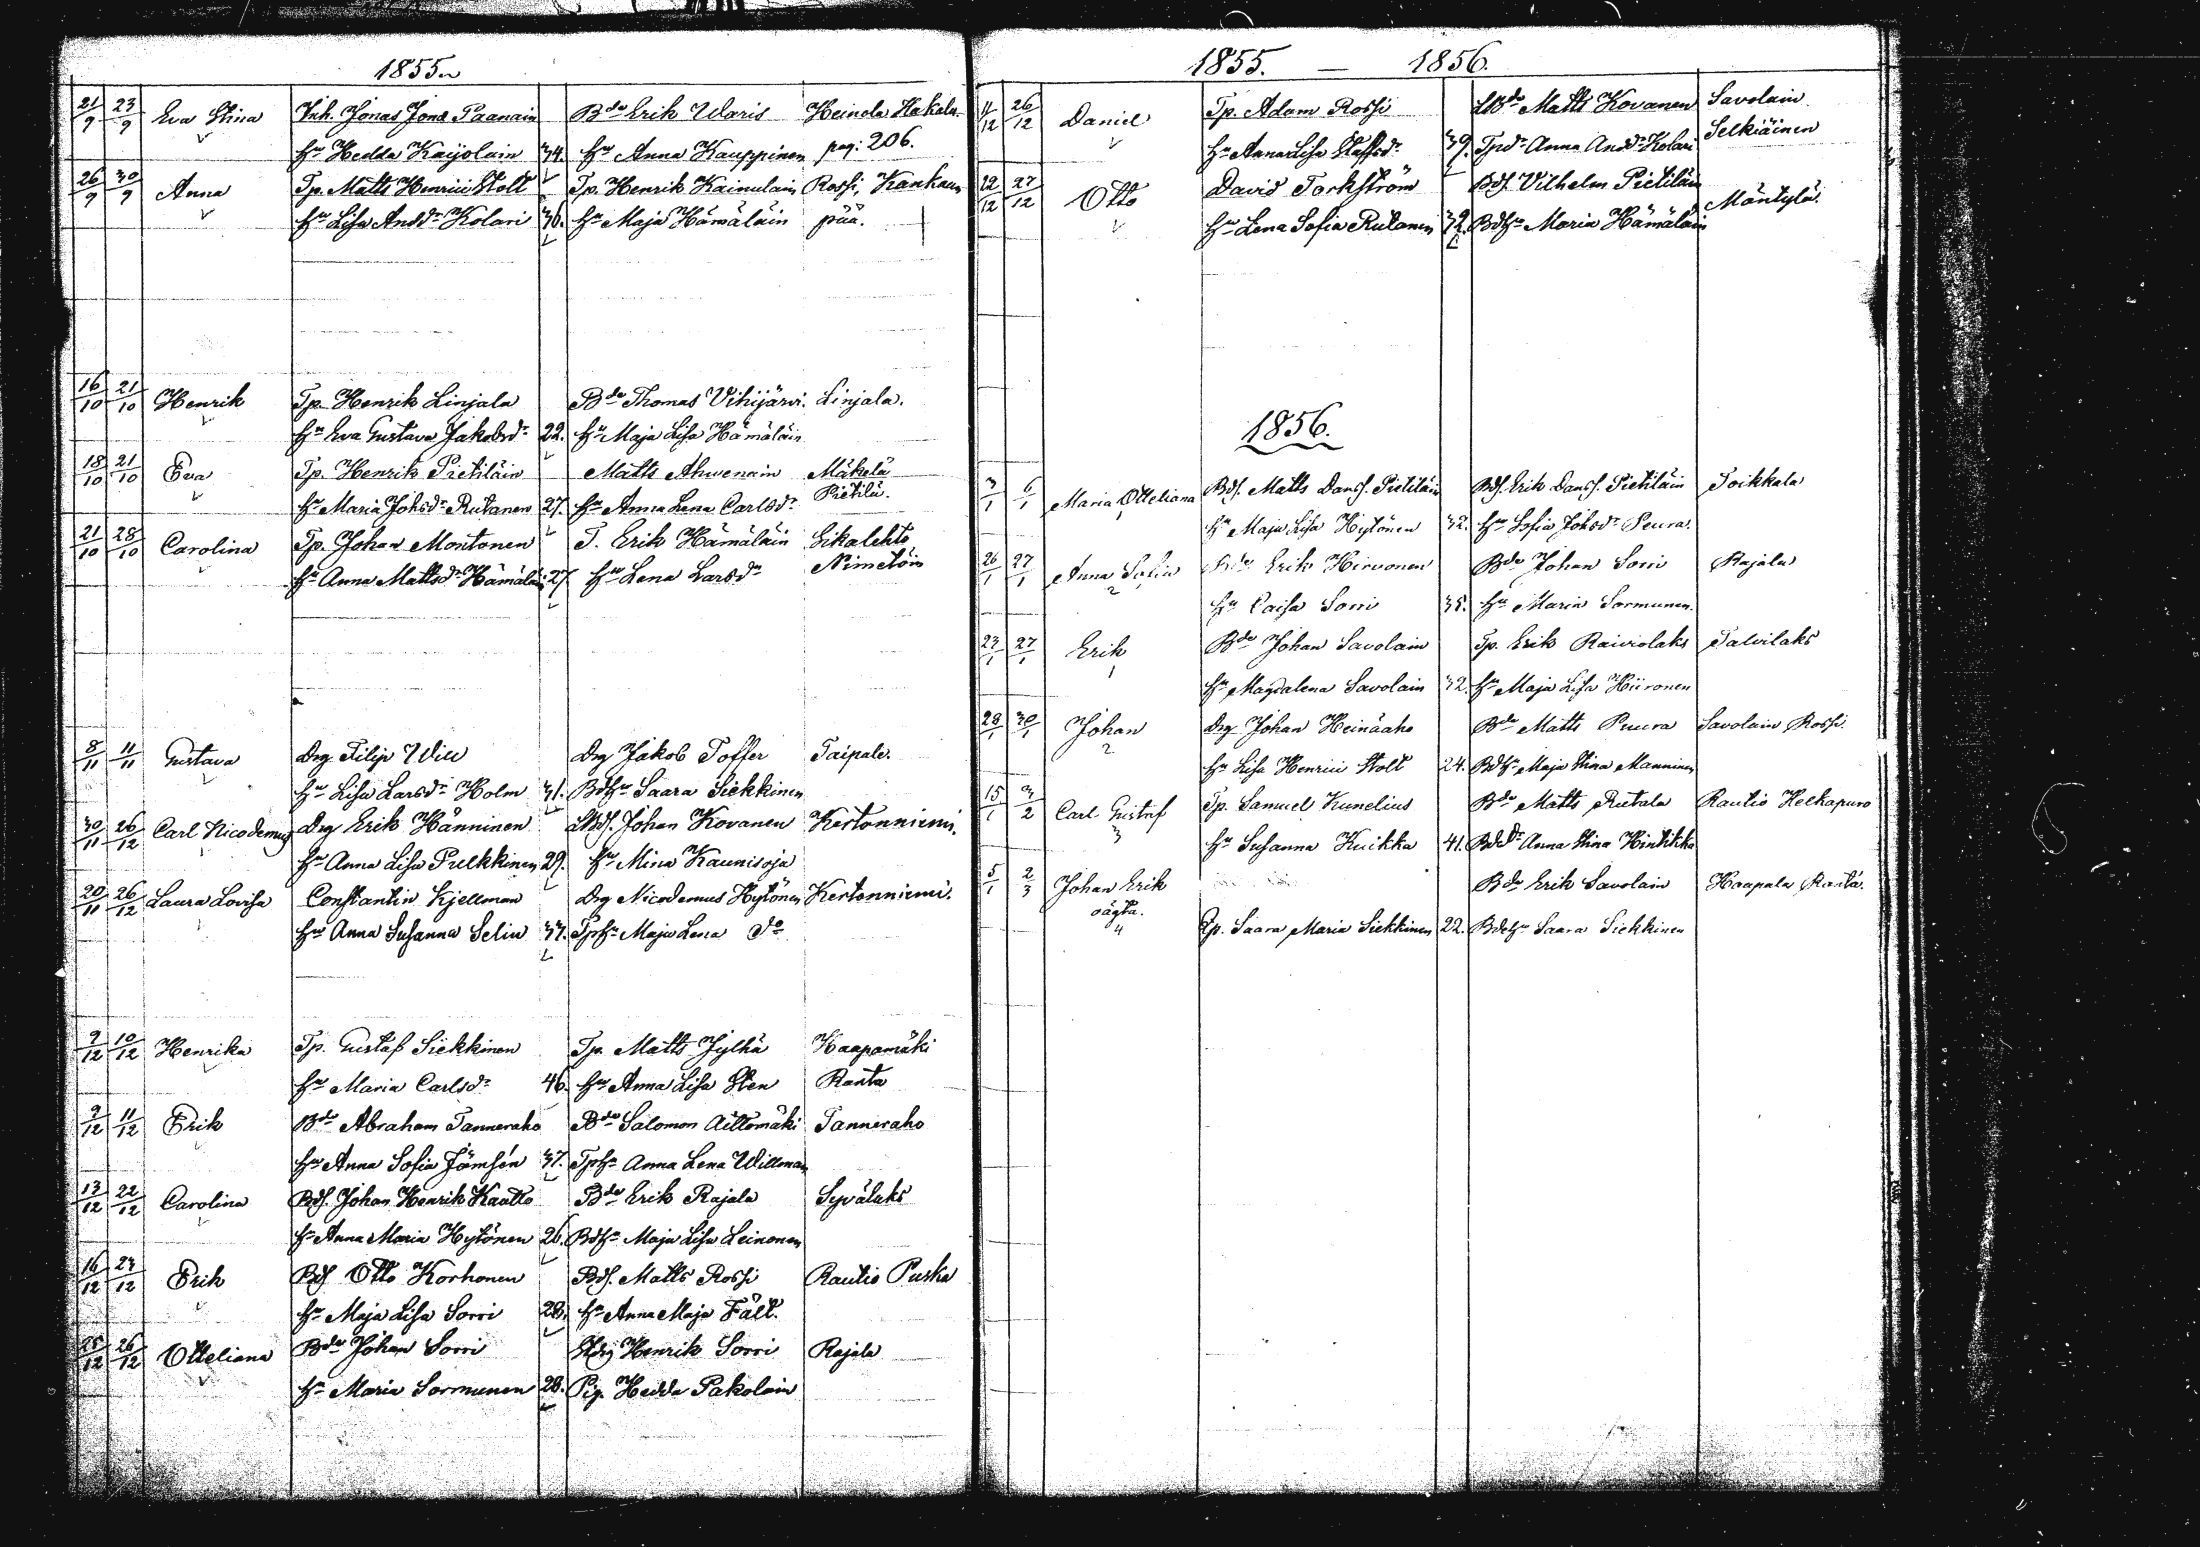 1855.
21/9 23/9 Eva Stina Inh. Jonas Jonæ Paanain Bde Erik Ularis Heinola Hakela
Hu Hedda Kaijolain 34. Hu Anna Kauppinen pag: 206.
26/9 30/9 Anna Tp. Matts Henrici Stolt Tp. Henrik Kainulain Rossi, Kankaan
Hu Lisa Andds Kolari 36. Hu Maja Hämäläin pää.
16/10 21/10 Henrik Tp. Henrik Linjala Bde Thomas Vihijärvi. Linjala.
Hu Eva Gustava Jakobsdr 22. Hu Maja Lisa Hämäläin
18/10 21/10 Eva Tp. Henrik Pietiläin Matts Ahwenain Mäkelä
Hu Maria Johsdr Rutanen 27. Hu Anna Lena Carlsdr Pietilä.
21/10 28/10 Carolina Tp. Johan Montonen T. Erik Hämäläin Sikalehto
Hu Anna Mattsdr Hämäläi 27. Hu Lena Larsdr Nimetöin
8/11 11/11 Gustava Drg Filip Will Drg Jakob Toffer Taipale.
Hu Lisa Larsdr Holm 31. Bdhu Saara Siekkinen
30/11 26/12 Carl Nicodemus Drg Erik Hänninen Bds. Johan Kovanen Kertonniemi.
Hu Anna Lisa Pulkkinen 29. Hu Mina Kaunisoja
20/11 26/12 Laura Lovisa Constantin Kjellman Drg Nicodemus Hytönen Kertonniemi.
Hu Anna Susanna Selin 37. Tphu Maja Lena do
9/12 10/12 Henrika Tp. Gustaf Siekkinen Tp. Matts Jylhä Haapamäki
Hu Maria Carlsdr 46. Hu Anna Lisa Sten Ranta
9/12 11/12 Erik Bde Abraham Tanneraho Bde Salomon Aittomäki Tanneraho
Hu Anna Sofia Jämsén 37. Tphu Anna Lena Willman
13/12 22/12 Carolina Bds. Johan Henrik Kautto Bde Erik Rajala Syvälaks
Hu Anna Maria Hytönen 26. Bdhu Maja Lisa Leinonen
16/12 23/12 Erik Bds Otto Korhonen Bds. Matts Rossi Rautio Puska
Hu Maja Lisa Sorri 28. Hu Anna Maja Fält.
25/12 26/12 Otteliana Bde Johan Sorri Henrik Sorri Rajala
Hu Maria Sormunen 28. Pig. Hedda Pakolain
1855. — 1856.
11/12 26/12 Daniel Tp. Adam Rossi Matts Kovanen Savolain
Hu Anna Lisa Staffsdr 39. Tpdr Anna Andds Kolari Selkiäinen
22/12 27/12 Otto David Torkström Bds. Vilhelm Pietiläin Mäntylä.
Hu Lena Sofia Rutanen 32. Bdhu Maria Hämäläin
1856.
3/1 6/1 Maria Otteliana Bds. Matts Danss. Pietiläin Bds. Erik Danss. Pietiläin Toikkala
1 Hu Maja Lisa Hytönen 32. Hu Sofia Johsdr Peura.
26/1 27/1 Anna Sofia Bde Erik Hirvonen Bde Johan Sorri Rajala
2 Hu Caisa Sorri 35. Hu Maria Sormunen.
23/1 27/1 Erik Bde Johan Savolain Tp. Erik Raiviolaks Talvilaks
1 Hu Magdalena Savolain 32. Hu Maja Lisa Hiironen
28/1 30/1 Johan Drg Johan Heinäaho Bde Matts Puura Savolain Rossi.
2 Hu Lisa Henrici Stolt 24. Bdhu Maja Stina Manninen
15/1 3/2 Carl Gustaf Tp. Samuel Kunelius Bde Matts Rutala Rautio Helkapuro
3 Hu Susanna Kuikka 41. Bddr Anna Stina Hintikka
5/1 2/3 Johan Erik Bde Erik Savolain Haapala Ranta.
oägta.
4 Pp. Saara Maria Siekkinen 22. Bdehu Saara Siekkinen